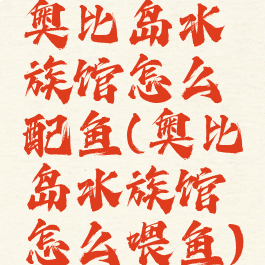 奥比岛水
族馆怎么
配鱼(奥比
岛水族馆
怎么喂鱼)